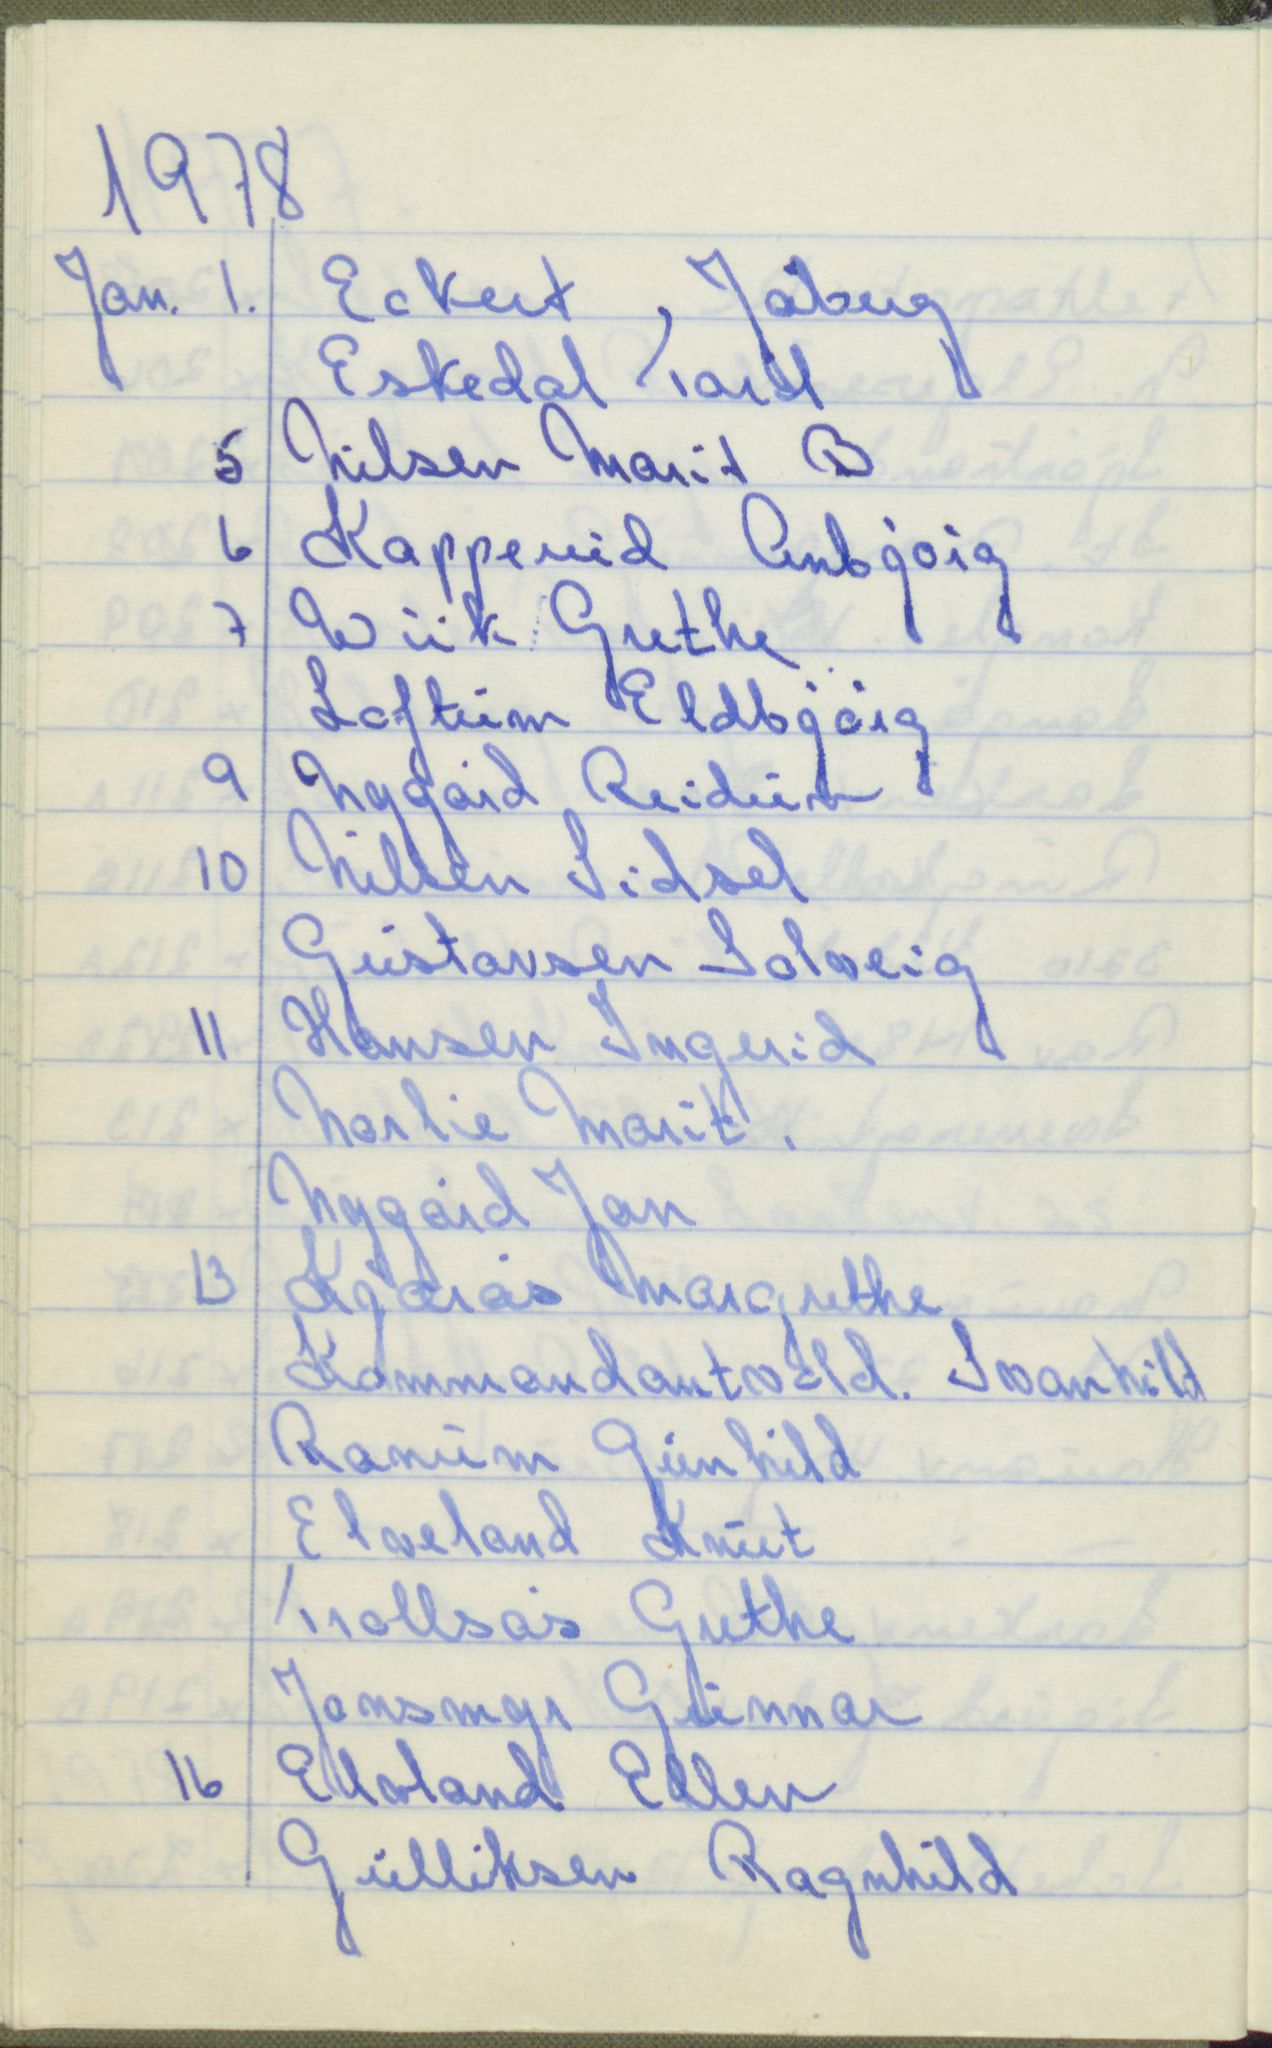 1978
Jan. 1. Eckert, Jabug
Eskedal Tarill
5 Nilsen Marit B
6 Kapperud Anbjørg
7 Wiik Grethe
Loftum Eldbjørg
9 Nygård Reidun
10 Nilsen Sidsel
Gustavsen Solveig
11 Hansen Ingerid
Narlie Marit.
Nygård Jan
13 Kjærås Margrethe
Kommandantvold. Svanhild
Ranum Gunhild
Elveland Knut
Trollsås Grethe
Jansmyr Gunnar
16 Elveland Ellen
Gulliksen Ragnhild